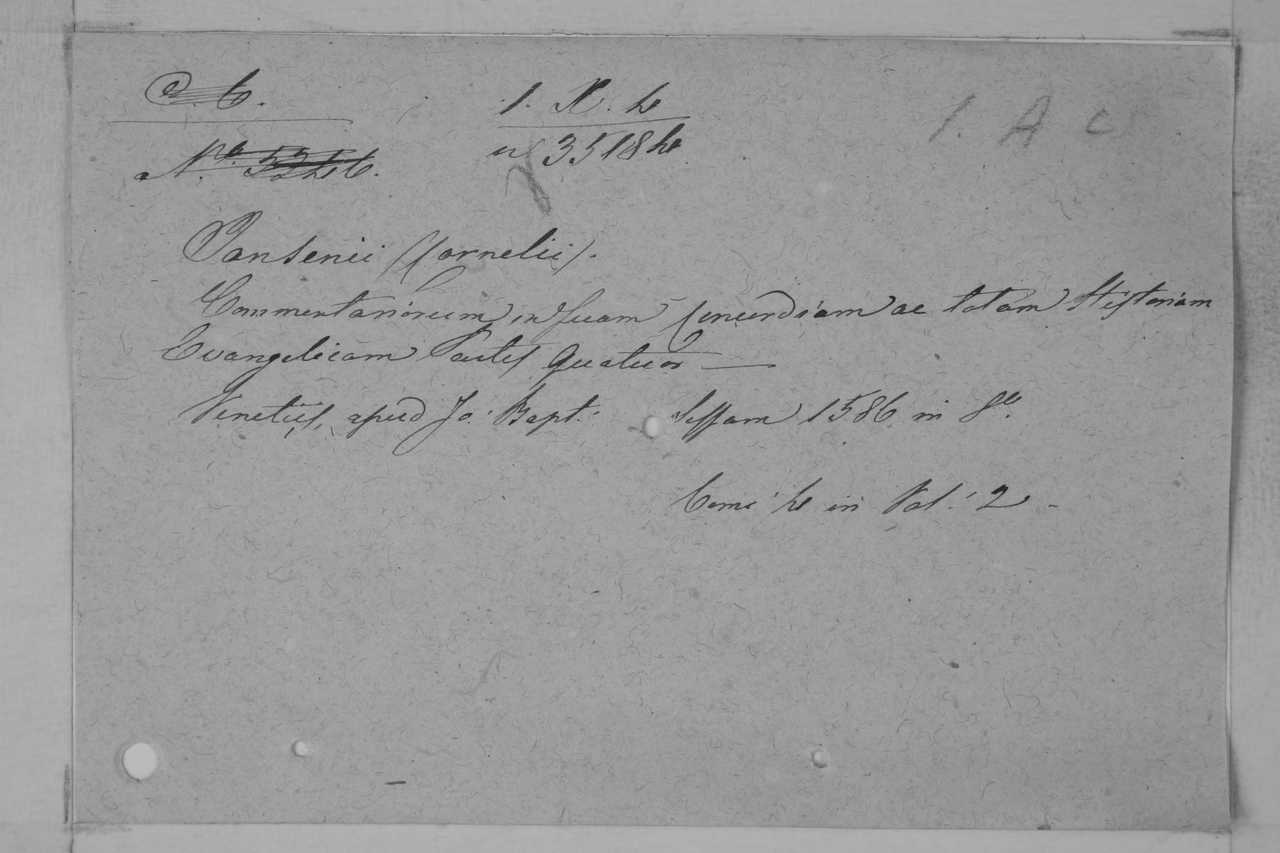 C.
1. X. h
n 3518 h
1. A c
Jansenii (Cornelii).
Commentariorum in suam Concordiam ac totam Historiam
Evangelicam Partes Quatuor —
Venetiis, apud Jo: Bapt: Sessam 1586 in 8º.
in Vol: 2 -